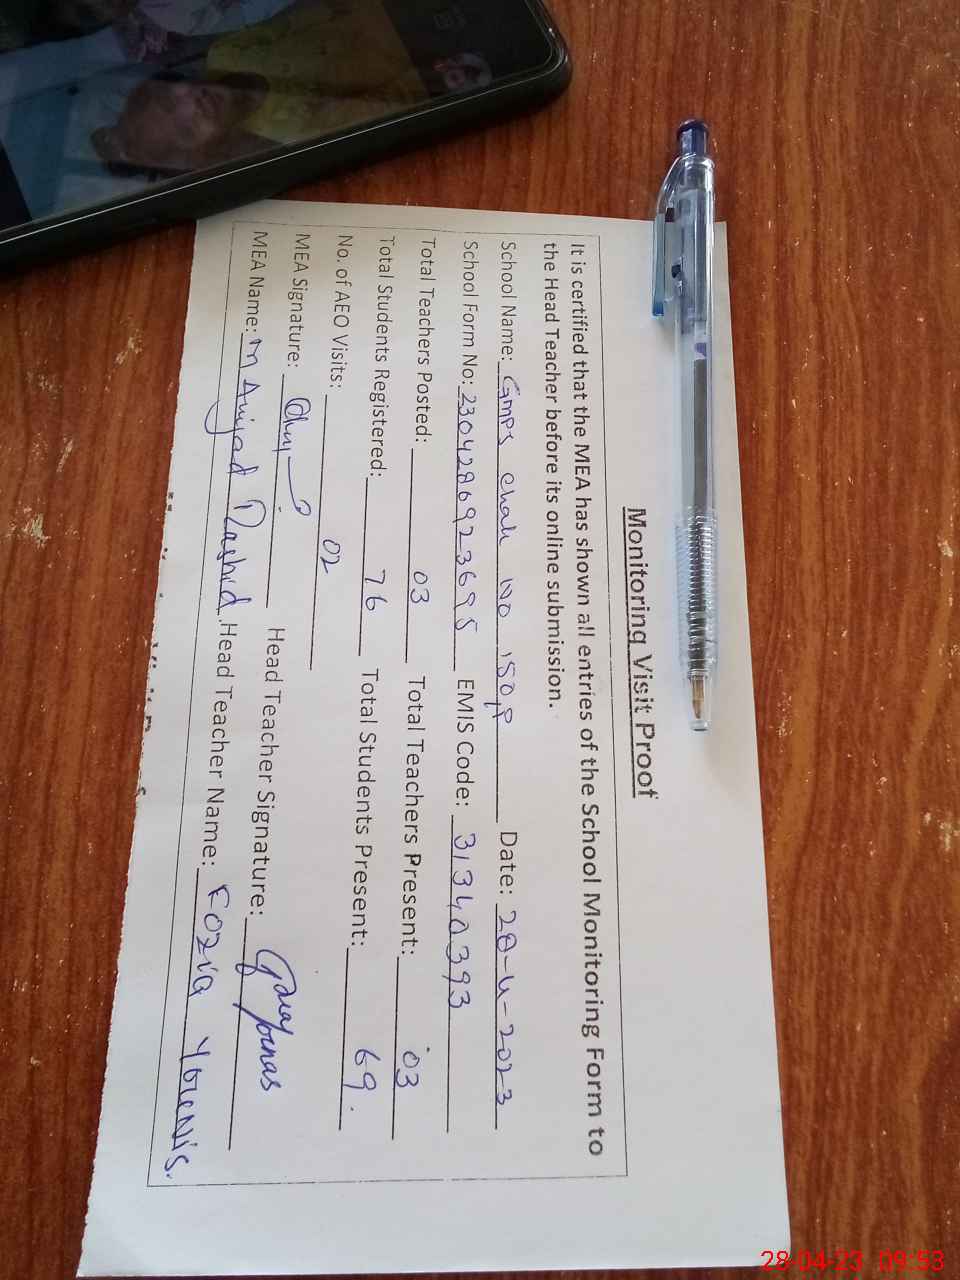 Monitoring Visit Proof
It is certified that the MEA has shown all entries of the School Monitoring Form to
the Head Teacher before its online submission.
School Name: GMPS Chak No 150,P Date: 28-4-2023
School Form No: 2304286923695 EMIS Code: 31340393
Total Teachers Posted: 03 Total Teachers Present: 03
Total Students Registered: 76 Total Students Present: 69.
No. of AEO Visits: 02
MEA Signature: Head Teacher Signature:
MEA Name: M Amjad Rashid. Head Teacher Name: Fozia Younis.
28-04-23 09:53